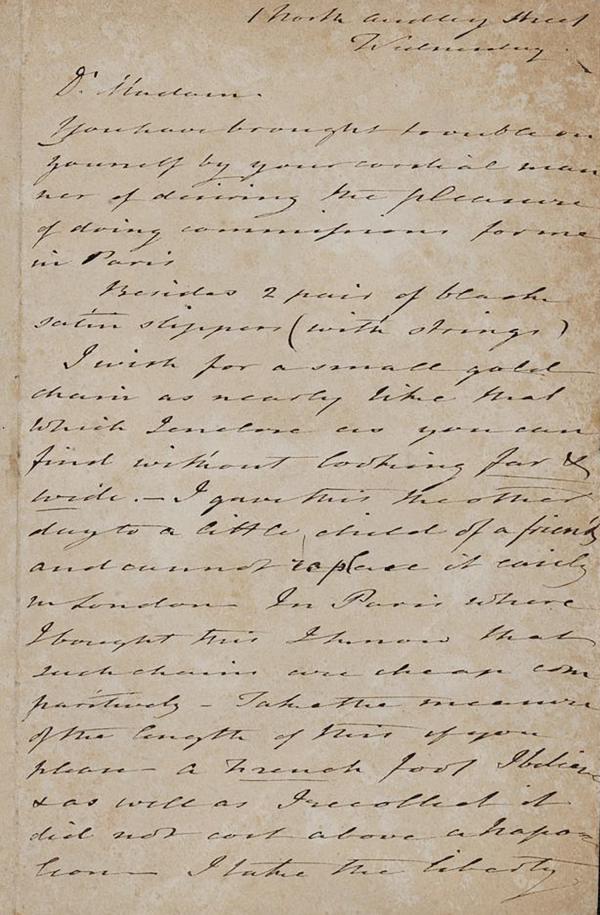 1 North Audley Street
Wednesday
Dr. Madam.
You have brought trouble on
yourself by your cordial man
ner of desiring the pleasure
of doing commissions for me
in Paris
Besides 2 pair of black
satin slippers (with strings)
I wish for a small gold
chain as nearly like that
which I enclose as you can
find without looking far &
wide. — I gave this the other
day to a little child of a friend
and cannot replace it easily
in London In Paris where
I bought this I know that
such chains are cheap com
paritively — Take the measure
of the length of this if you
please a French foot I believe
& as well as I recollect it
did not cost above a Napo=
leon — I take the liberty